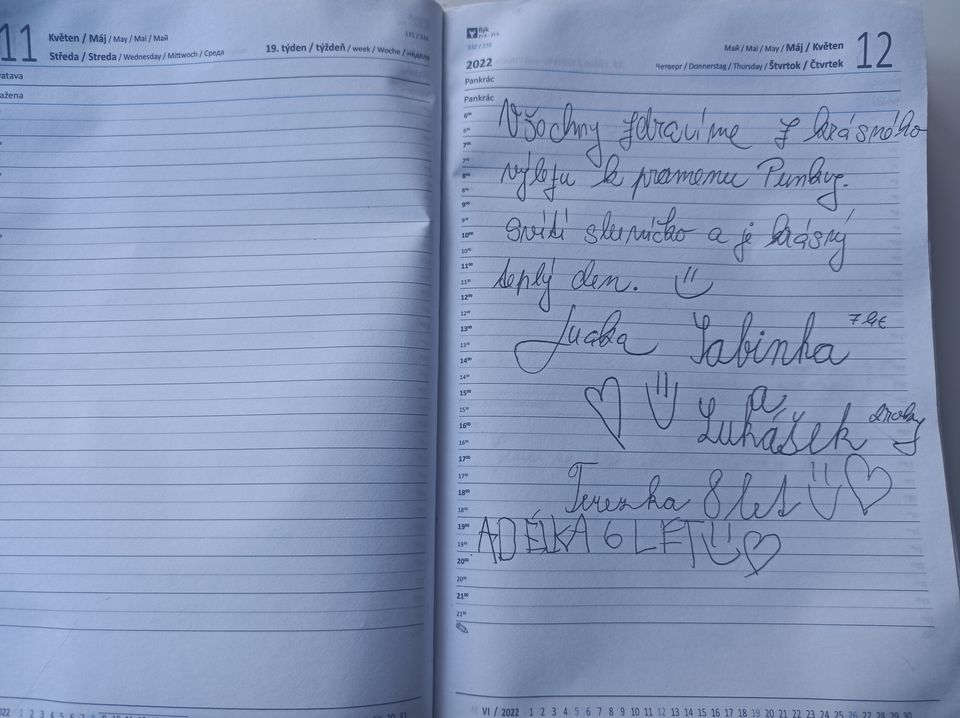 11
Květen / Máj / May / Mai / Май
Středa / Streda / Wednesday / Mittwoch / Среда
19. týden / týždeň / week / Woche / неделя
131 / 234
vatava
ažena
Býk
21.4.-21.5.
132 / 233
2022
Май / Mai / May / Máj / Květen
Четверг / Donnerstag / Thursday / Štvrtok / Čtvrtek
12
Pankrác
Pankrác
Všechny zdravíme z krásného
výletu k pramenu Punkvy.
Svítí sluníčko a je krásný
teplý den.
Lucka Sabinka 7 let
a
Lukášek
Terezka 8 let
ADÉLKA 6 LET
6⁰⁰
6³⁰
7⁰⁰
7³⁰
8⁰⁰
8³⁰
9⁰⁰
9³⁰
10⁰⁰
10³⁰
11⁰⁰
11³⁰
12⁰⁰
12³⁰
13⁰⁰
13³⁰
14⁰⁰
14³⁰
15⁰⁰
15³⁰
16⁰⁰
16³⁰
17⁰⁰
17³⁰
18⁰⁰
18³⁰
19⁰⁰
19³⁰
20⁰⁰
20³⁰
21⁰⁰
21³⁰
VI / 2022 1 2 3 4 5 6 7 8 9 10 11 12 13 14 15 16 17 18 19 20 21 22 23 24 25 26 27 28 29 30